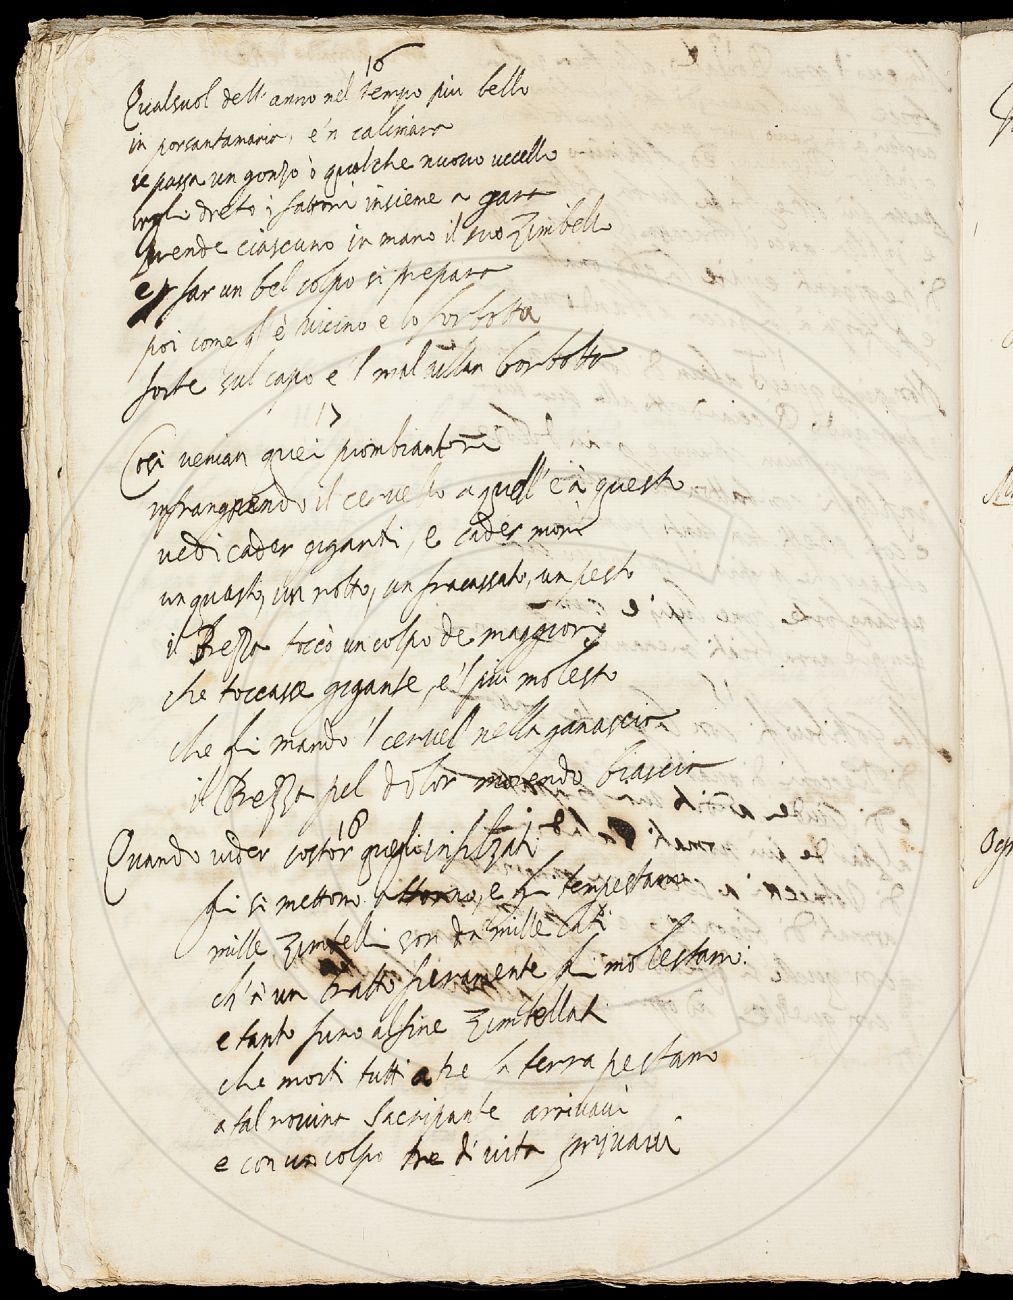 16
Qualsuol dell'anno nel tempo piu bello
in porsantamaria, e'n calimara
se passa un gonzo ò qualche nuovo uccello
dreto i fattori insieme a gara
prende ciascuno in mano il suo Zimbello
e far un bel colpo si prepara
poi come gl'è vicino e lo forbotta
forte sul capo e'l mal villan borbotta
17
Cosi venian quei piombiantori
infrangnendo il cervello a quell' e à questo
vedi cader giganti, e cader mori
un guasto, un rotto, un fracassato, un pesto
il Brezza toccò un colpo de maggiori
che toccasse gigante, e'l piu molesto
che gli mandò 'l cervel' nella ganascia
il Brezza pel dolor morendo biascia
18
Quando vider costor quegli infilzati
gli si mettono attorno, e gli tempestano
mille zimbelli son da mille lati
ch'à un tratto fieramente gli molestano
e tanto furo alfine Zimbellati
che morti tutti a tre la terra pestano
a tal rovina Sacripante arrivavi
e con un colpo tre di vita privavi